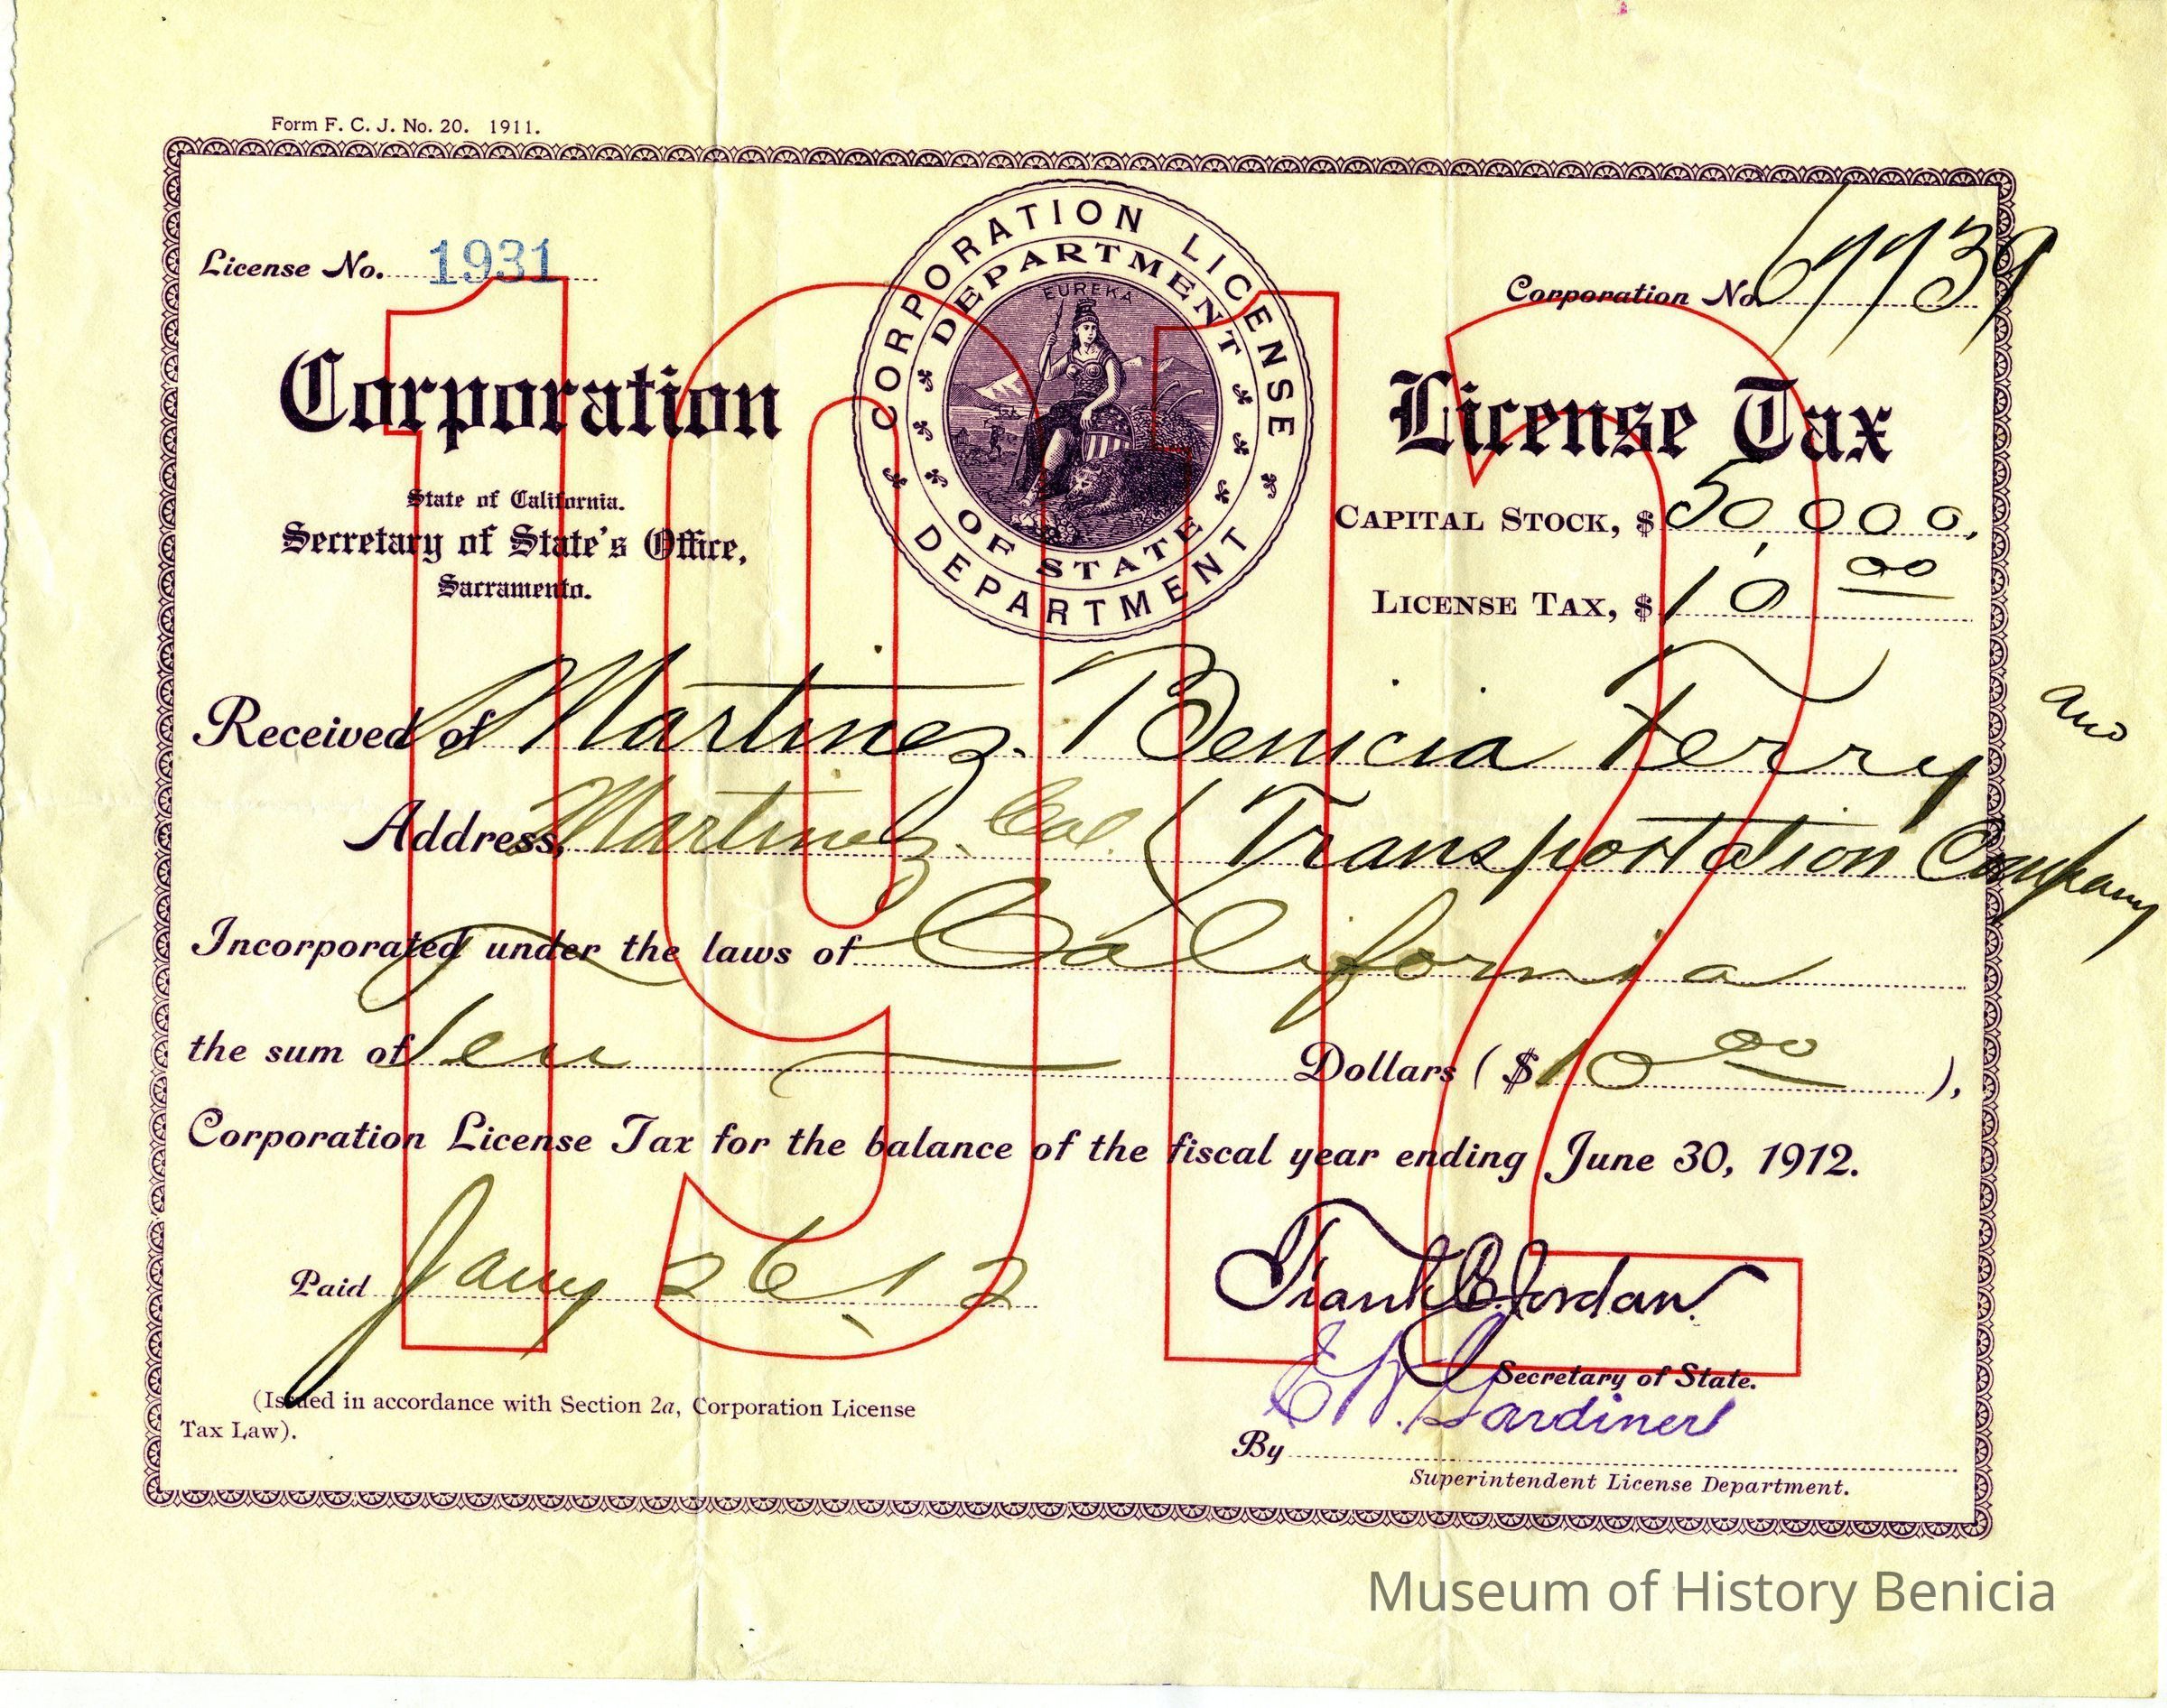 Form F. C. J. No. 20. 1911.
License No. 1931
CORPORATION LICENSE DEPARTMENT
DEPARTMENT OF STATE
EUREKA
Corporation No. 67739
Corporation License Tax
State of California.
Secretary of State's Office,
Sacramento.
CAPITAL STOCK, $50,000.
LICENSE TAX, $10 00
1912
Received of Martinez Benicia Ferry and
Address, Martinez. Cal. (Transportation Company
Incorporated under the laws of California
the sum of Ten Dollars ($10 00),
Corporation License Tax for the balance of the fiscal year ending June 30, 1912.
Paid Jany 26, 12
Frank C. Jordan.
Secretary of State.
(Issued in accordance with Section 2a, Corporation License
Tax Law).
By E W. Gardiner
Superintendent License Department.
Museum of History Benicia